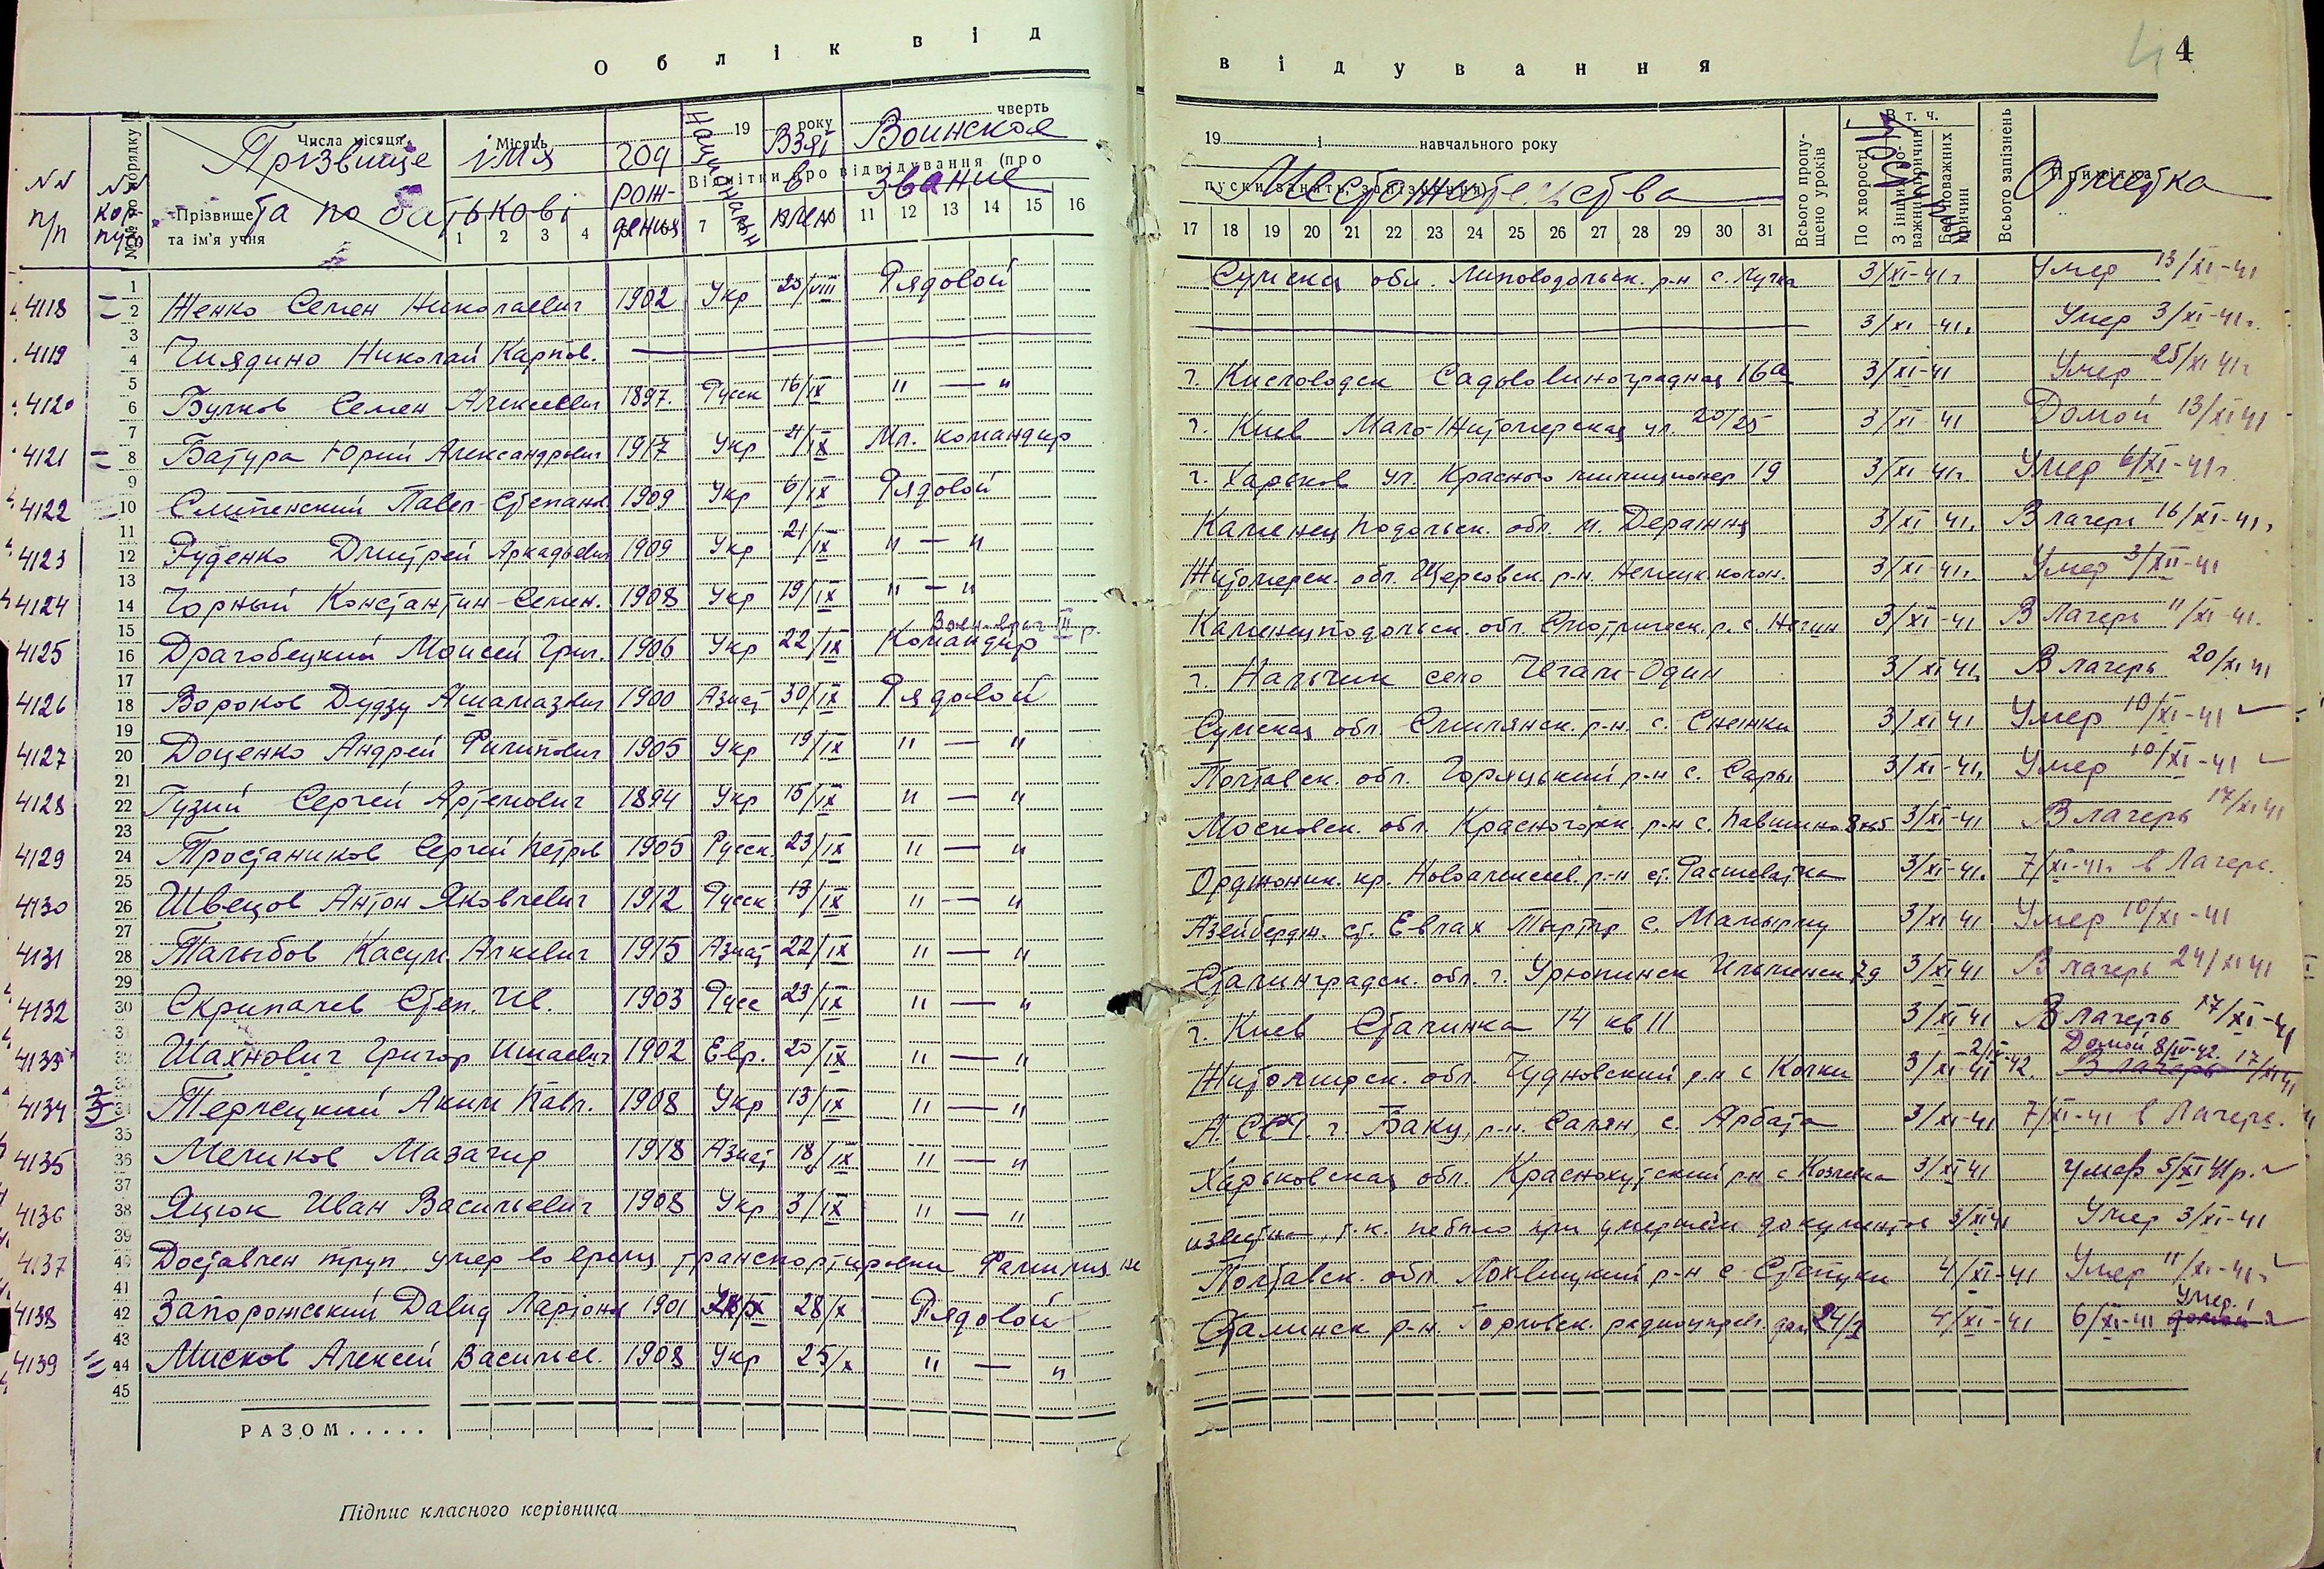 Облік від
відування
4
Числа місяця
Місяць
19 року
чверть
Прізвище
імя
год
Национальн
Взят
Воинское
NN п/п
NN корпуса
№№ по порядку
Прізвище та ім'я учня
та по батькові
рож-
дения
Відмітки про відвідування (про
в
плен
звание
1 2 3 4 7 11 12 13 14 15 16
19 і навчального року
пуски занять, запізнення)
Местожительства
17 18 19 20 21 22 23 24 25 26 27 28 29 30 31
Всього пропущено уроків
В т. ч.
По хворості
З інших поважних причин
Без поважних причин
Всього запізнень
Примітка
Отметка
4118 2 Женко Семен Николаевич 1902 Укр 20/VIII Рядовой Сумская обл. Липоводольск. р-н с. Лучка 3/XI-41г Умер 13/XI-41
4119 4 Чилядино Николай Карпов. 3/XI-41г. Умер 3/XI-41г.
4120 6 Булков Семен Алексеевич 1897. Русск 16/IX " — " г. Кисловодск Садово Виноградная 16а 3/XI-41 Умер 25/XI 41г
4121 8 Батура Юрий Александрович 1917 Укр 4/IX Мл. командир г. Киев Мало-Житомирская ул. 20/25 3/XI-41 Домой 13/XI 41
4122 10 Слипенский Павел Степан. 1909 Укр 6/IX Рядовой г. Харьков ул. Красного милиционер 19 3/XI 41г. Умер 6/XI-41г
4123 12 Руденко Дмитрей Аркадьевич 1909 Укр 21/IX " — " Каменец Подольск. обл. м. Деражня 3/XI 41г. В лагерь 16/XI-41г
4124 14 Чорный Константин Семен. 1908 Укр 19/IX " — " Житомирск. обл. р-н. Немецк. колон. 3/XI-41г. Умер 3/XII-41
4125 16 Драгобецкий Моисей Григ. 1906 Укр 22/IX Командир Воен-врач III р. Каменецподольск. обл. Смотрическ. р. с. Негин 3/XI-41 В Лагерь 11/XI-41.
4126 18 Вороков Дудзу Ашамазвич 1900 Азиат 30/IX Рядовой г. Нальчик село Чегам-Один 3/XI 41г. В лагерь 20/XI 41
4127 20 Доценко Андрей Филипович 1905 Укр 19/IX " — " Сумская обл. Смилянск. р-н. с. Снежки 3/XI 41 Умер 10/XI-41
4128 22 Гузий Сергей Артемович 1894 Укр 15/IX " — " Полтавск. обл. Горяцький р-н с. Сары 3/XI-41г. Умер 10/XI-41
4129 24 Тростаников Сергей Петров 1905 Русск. 23/IX " — " Московск. обл. Красногорск. р-н с. Павшино 3/XI-41 В лагерь 17/XI 41
4130 26 Швецов Антон Яковлевич 1912 Русск 13/IX " — " Орджоник. кр. Новоалексеев. р-н ст. Расшеватка 3/XI-41г. 7/XI-41г. в Лагерь.
4131 28 Талыбов Касум Алиевич 1915 Азиат 22/IX " — " Азейбердж. ст. Евлах Тыртыр с. 3/XI 41 Умер 10/XI-41
4132 30 Скрипалев Степ. Ив. 1903 Русс 23/IX " — " Сталинградск. обл. г. Урюпинск 79 3/XI 41 В лагерь 24/XI 41
4133 32 Шахнович Григор. Ишаевич 1902 Евр. 20/IX " — " г. Киев Сталинка 14 кв 11 3/XI 41 В лагерь 17/XI-41
4134 Терлецкий Аким Павл. 1908 Укр 13/IX " — " Житомирск. обл. Чудновский р-н с Колки 3/XI 41 2/IV-42. Домой 8/IV-42. В лагерь 17/XI 41
4135 36 Меликов Мазагир 1918 Азиат 18/IX " — " А. ССР. г. Баку, р-н. Салян, с. Арбата 3/XI-41 7/XI-41 в Лагерь.
4136 38 Яцюк Иван Васильевич 1908 Укр 3/IX " — " Харьковская обл. Краснокутский р-н с Козиевка 3/XI 41 умер 5/XI 41р.
4137 40 Доставлен труп. умер во время транспортировки Фамилия не известна, т.к. небыло при умершем документов 3/XI 41 Умер 3/XI-41
4138 42 Запорожський Давид Ларіон. 1901 28/X Рядовой Полтавск. обл. Лохвицкий р-н с Степуки 4/XI-41 Умер 11/XI-41г
4139 44 Мисков Алексей Васильев. 1908 Укр 25/X " — " Сталинск р-н. Горловск. дом 24/1 4/XI-41 6/XI-41 умер.
45
РАЗОМ.....
Підпис класного керівника